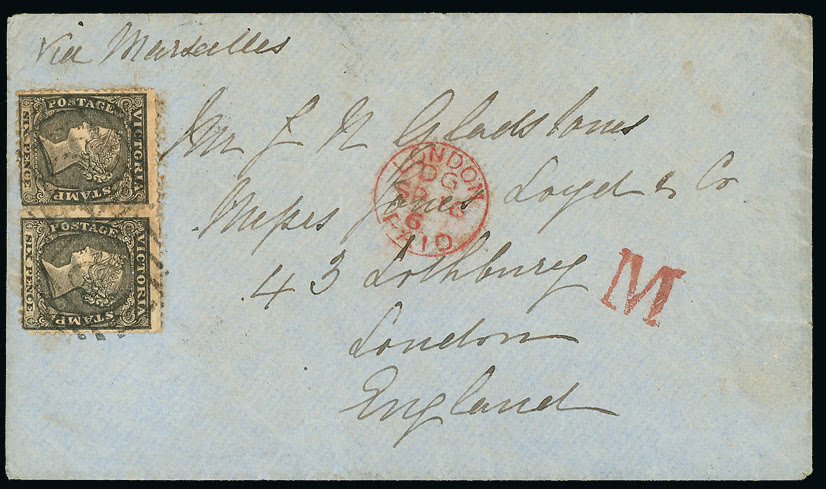 Via Marseilles
POSTAGE
VICTORIA
STAMP
SIX PENCE
POSTAGE
VICTORIA
STAMP
SIX PENCE
Mr J N Gladstones
Messrs Jones Loyd & Co
43 Lothbury
London
England
LONDON
DG
6
PAID
M